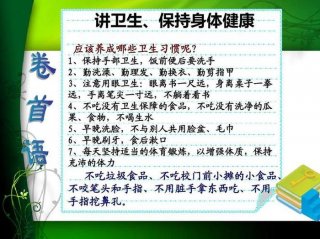 讲卫生、保持身体健康
卷首语
应该养成哪些卫生习惯呢?
1、保持手部卫生,饭前便后要洗手
2、勤洗澡、勤理发、勤换衣、勤剪指甲
3、注意用眼卫生:眼离书一尺远,身离桌子一拳
远,手离笔尖一寸远,不躺着看书
4、不吃没有卫生保障的食品,不吃没有洗净的瓜
果、食物,不喝生水
5、早晚洗脸,不与别人共用脸盆、毛巾
6、早晚刷牙,食后漱口
7、每天坚持适当的体育锻炼,以增强体质,保持
充沛的体力
不吃垃圾食品、不吃校门前小摊的小食品、
不咬笔头和手指、不用脏手拿东西吃、不用
手指挖鼻孔.